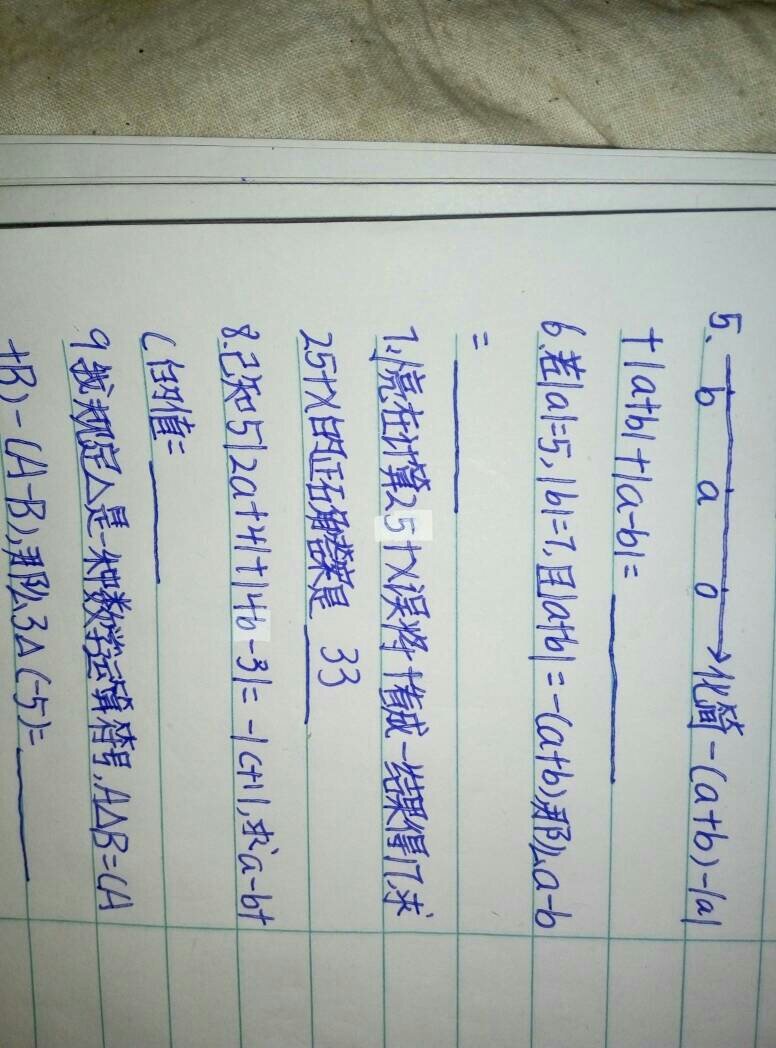 5. b a 0 化简-(a+b)-|a|
+|a+b|+|a-b|=
6.若|a|=5,|b|=7,且|a+b|=-(a+b),那么a-b
=
7.小亮在计算25+X误将+看成-结果得17,求
25+X的正确答案是 33
8.已知5|2a+4|+|4b-3|=-|c+1|,求a-b+
C的值=
9.我规定△是一种数学运算符号,A△B=(A
+B)-(A-B),那么3△(-5)=